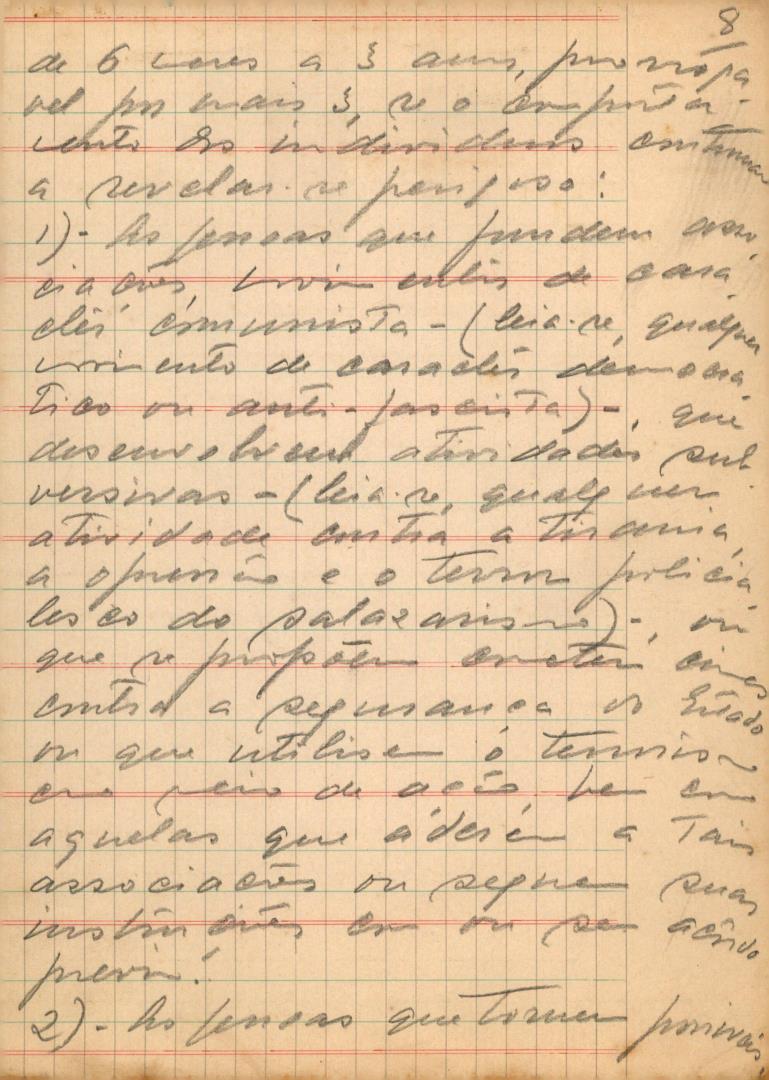 8
de 6 meses a 3 anos, prorroga
vel por mais 3, se o comporta-
mento dos individuos continuar
a revelar-se perigoso:
1)- As pessoas que fundem asso
ciações, movimentos de cará
cter comunista - (leia-se, qualquer
movimento de carácter democrá
tico ou anti-fascista) -, que
desenvolvem atividades sub
versivas - (leia-se, qualquer
atividade contra a tirania,
a opressão e o terror policia
lesco do salazarismo) -, ou
que se propõem cometer crimes
contra a segurança do Estado
ou que utilisem o terrorismo
como meio de ação, bem como
aquelas que aderem a tais
associações ou seguem suas
instruções com ou sem acôrdo
previo.
2)- As pessoas que tornem possiveis,